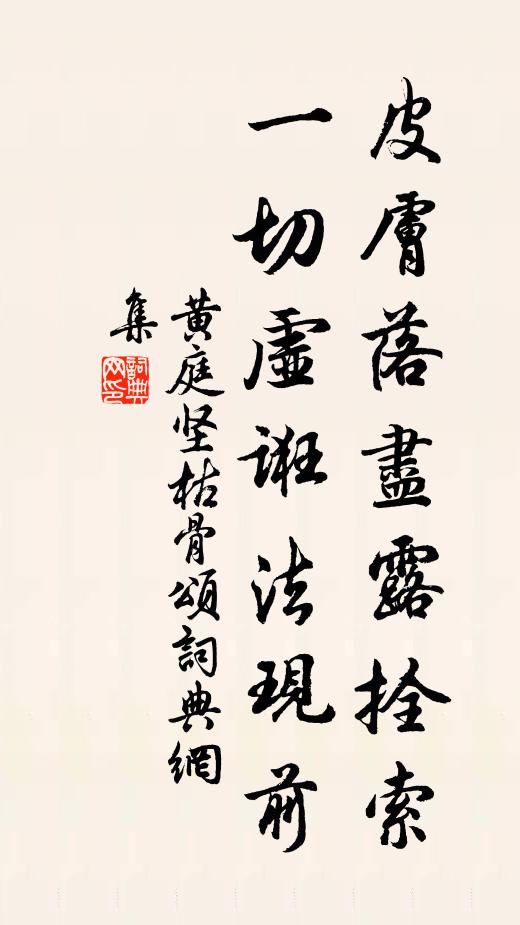 皮膚落盡露拴索
一切虛誑法現前
黄庭坚枯骨頌詞典網
集
詞典网印